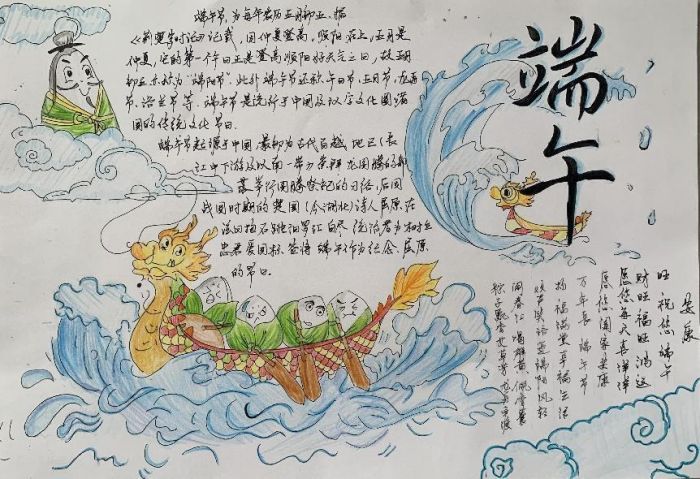 端午节,为每年农历五月初五。据
《荆楚岁时记》记载,因仲夏登高,顺阳在上,五月是
仲夏,它的第一个午日正是登高顺阳好天气之日,故五月
初五亦称为“端阳节”。此外端午节还称午日节、五月节、龙舟
节、浴兰节等。端午节是流行于中国及汉字文化圈诸
国的传统文化节日。
端午节起源于中国,最初为古代百越地区(长
江中下游及以南一带)崇拜龙图腾的部
族举行图腾祭祀的习俗,后因
战国时期的楚国(今湖北)诗人屈原在
该日抱石跳汨罗江自尽,统治者为树立
忠君爱国标签将端午作为纪念屈原
的节日。
端午
安康
旺祝您端午
财旺福旺鸿运
愿您每天喜洋洋
愿您阖家安康
万年长端午节
福满堂享福生活
端阳风轻
闹春江喝雄黄佩香囊
粽子飘香艾草芳龙舟